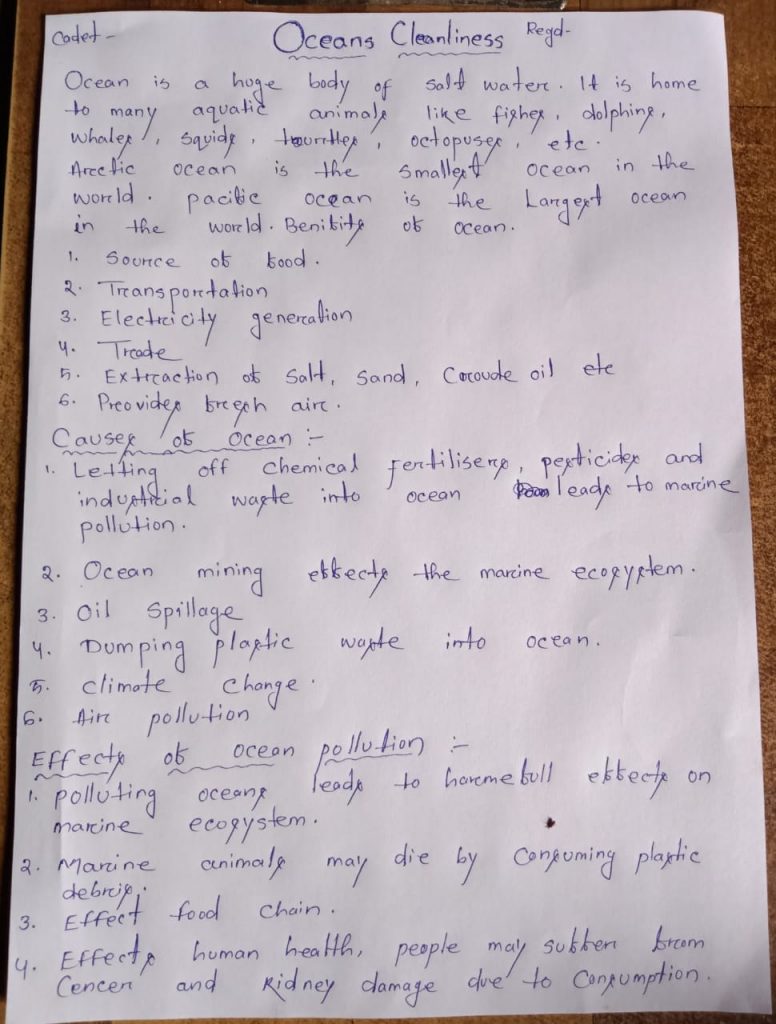 Cadet -
Oceans Cleanliness
Regd-
Ocean is a huge body of salt water. It is home
to many aquatic animals like fishes, dolphins,
whales, squids, tourtles, octopuses, etc.
Arectic ocean is the smallest ocean in the
world. pacific ocean is the Largest ocean
in the world. Benifits of ocean.
1. Source of food.
2. Transportation
3. Electricity generation
4. Trade
5. Extraction of Salt, Sand, Coroude oil etc
6. Provides fresh air.
Causes of ocean :-
1. Letting off chemical fertilisers, pesticides and
industrial waste into ocean leads to marine
pollution.
2. Ocean mining effects the marine ecosystem.
3. Oil Spillage
4. Dumping plastic waste into ocean.
5. climate change.
6. Air pollution
Effects of ocean pollution :-
1. polluting oceans leads to harmefull effects on
marine ecosystem.
2. Marine animals may die by Consuming plastic
debris.
3. Effect food chain.
4. Effects human health, people may suffer from
Cencer and Kidney damage due to Consumption.